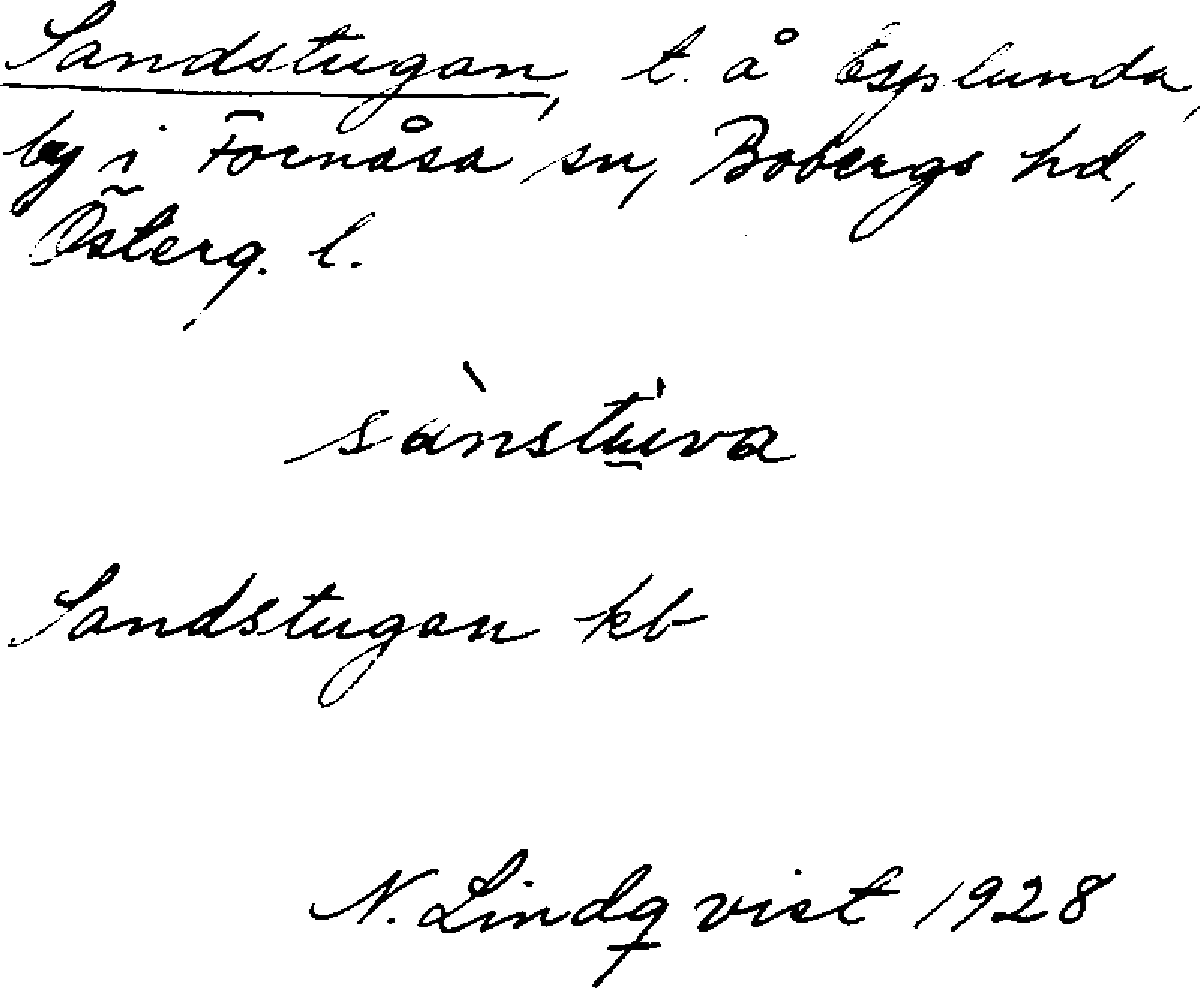 Sandstugan, t. å Esplunda,
by i Fornåsa sn, Bobergs hd,
Österg. l.
sànstu̱̍va
Sandstugan kb
N. Lindqvist 1928